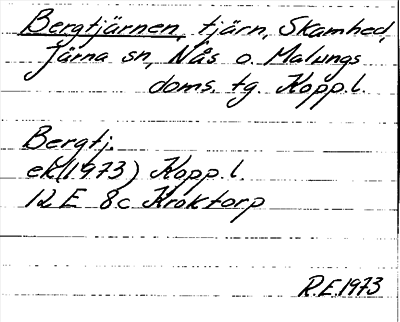 Bergtjärnen, tjärn, Skamhed,
Järna sn, Nås o. Malungs
doms. tg. Kopp. l.
Bergtj.
ek (1973) Kopp. l.
12 E 8c Kroktorp
R.E. 1973